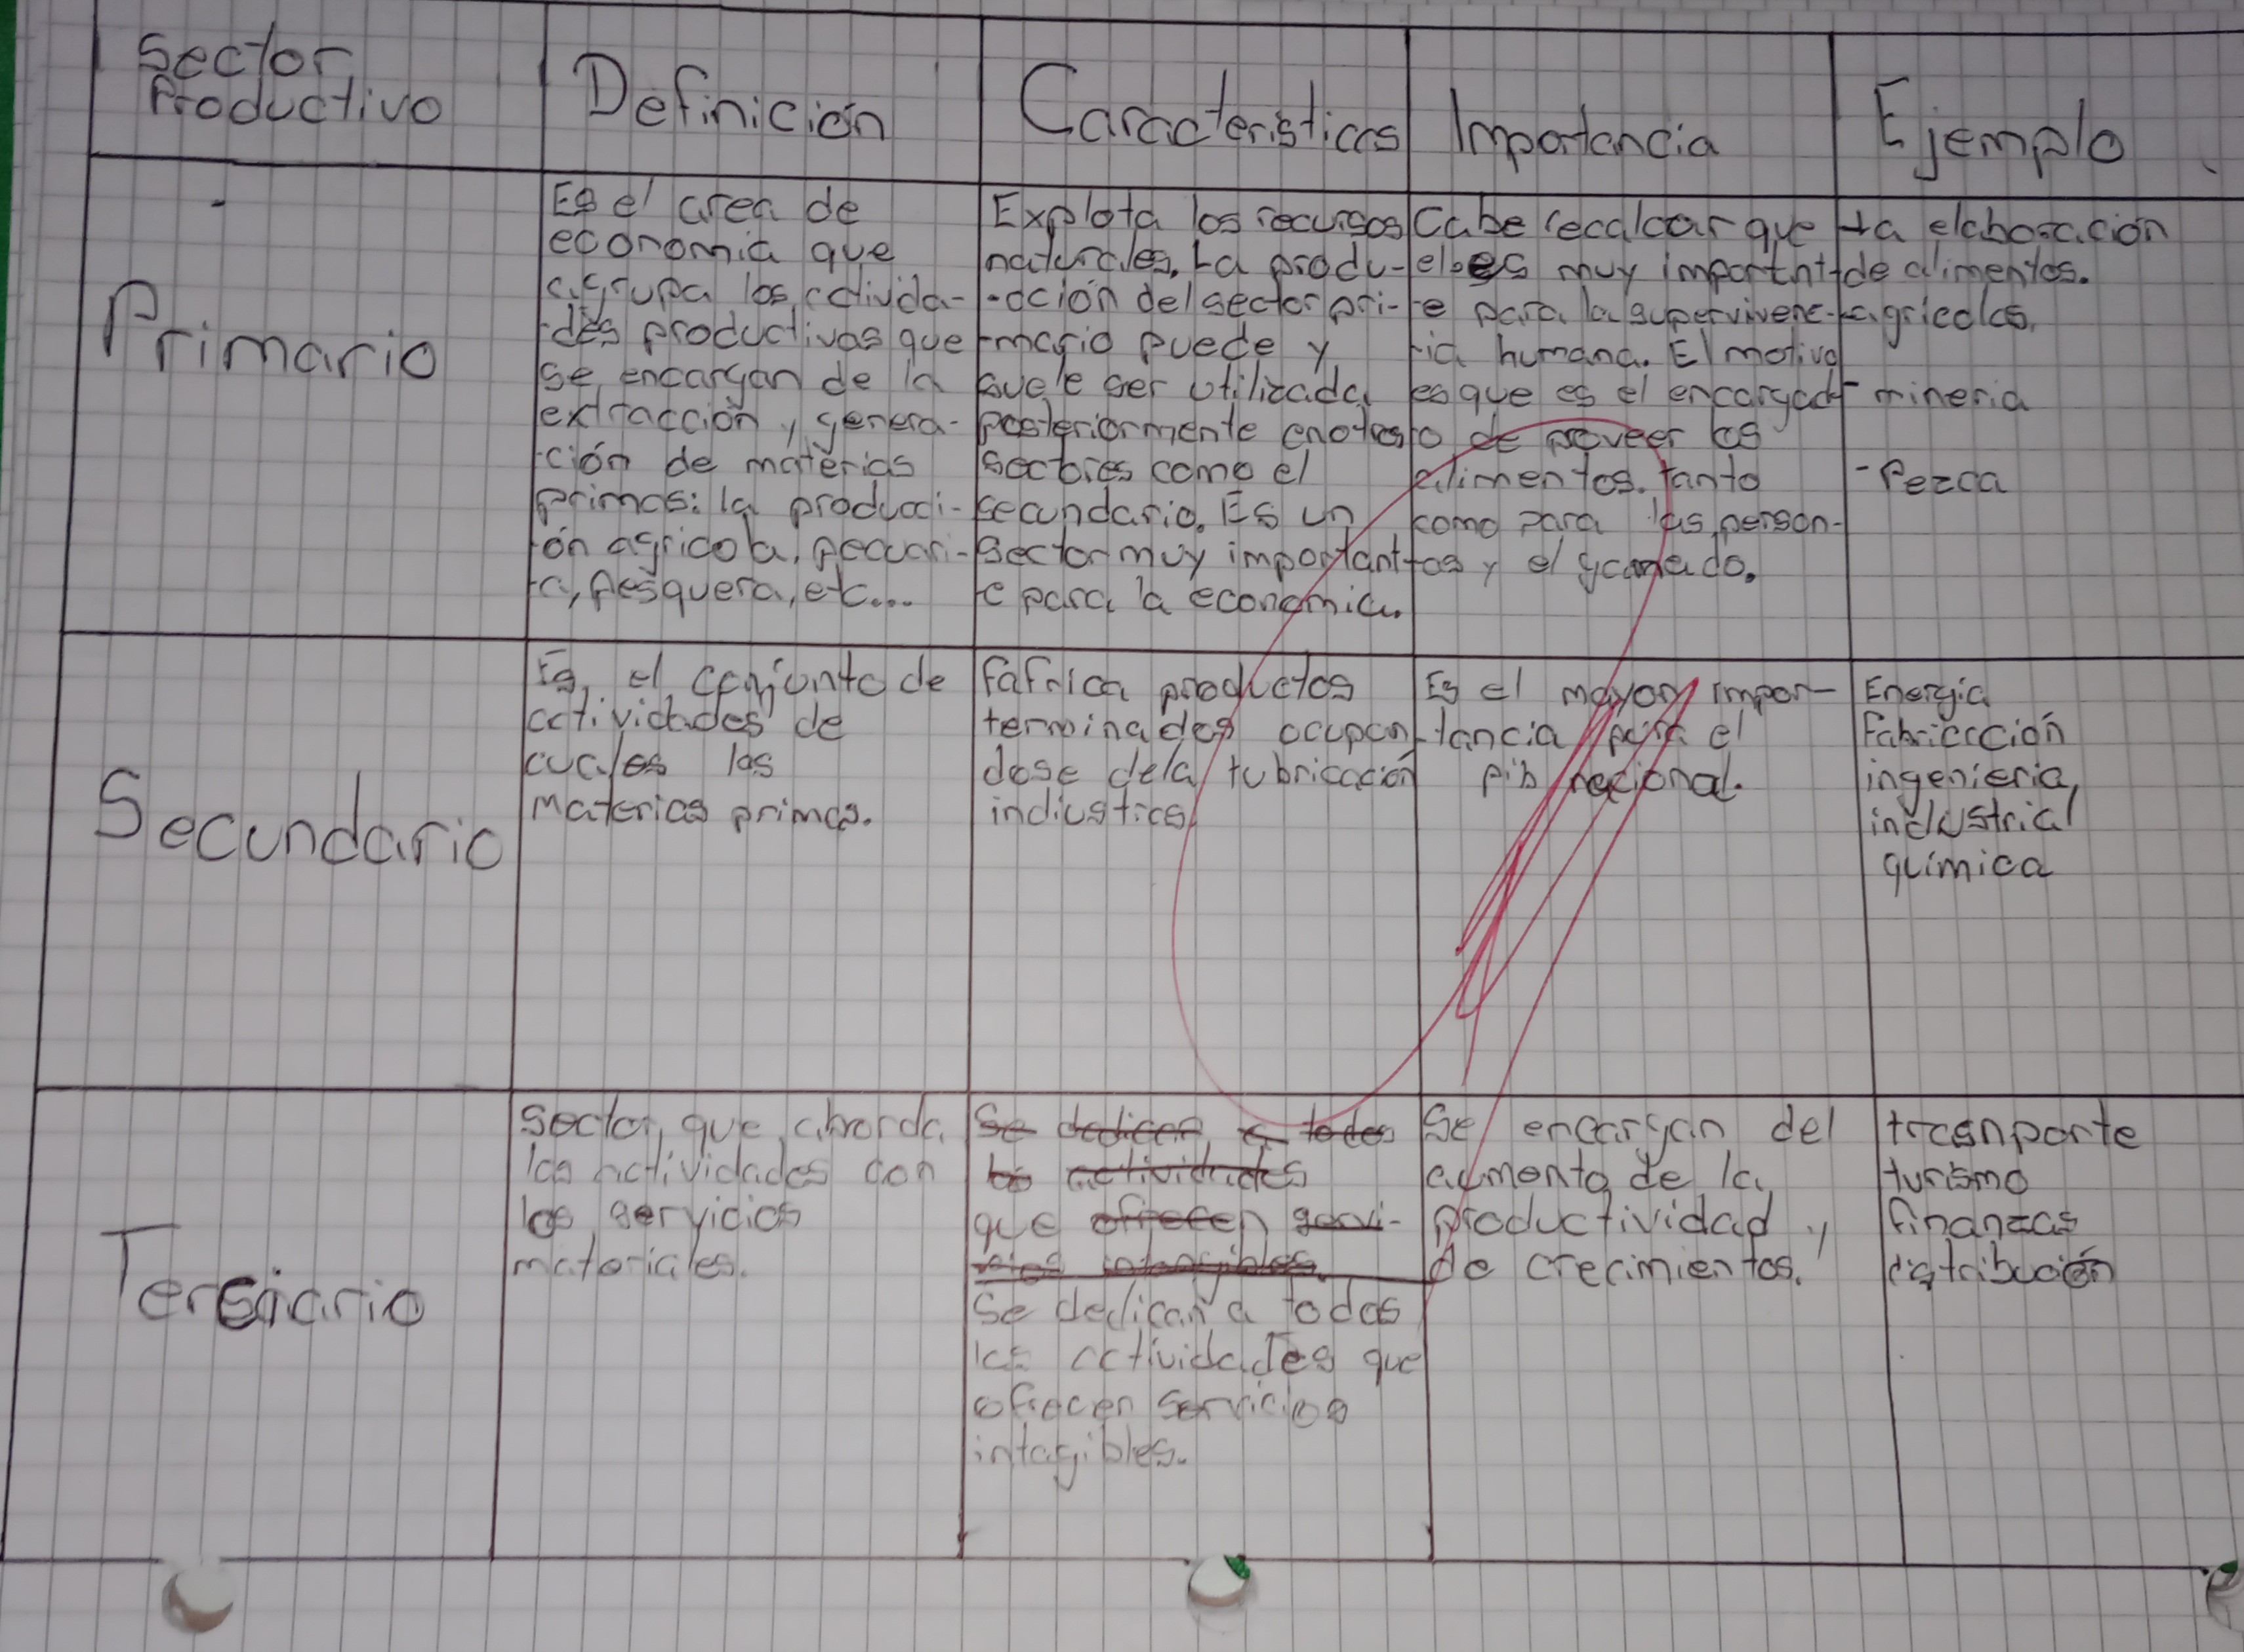 Sector
Productivo
Definición
Caracteristicas
Importancia
Ejemplo
Primario
Es el area de
economia que
agrupa las activida-
-des productivas que
se encargan de la
extracción y genera-
-ción de materias
primas: la producci-
-ón agricola, pecuari-
-a, pesquera, etc...
Explota los recursos
naturales. La produ-
-cción del sector pri-
-mario puede y
suele ser utilizada
posteriormente en otros
sectores como el
secundario. Es un
sector muy important-
-e para la economia.
Cabe recalcar que
el es muy importnt-
-e para la supervivenc-
-ia humana. El motivo
es que es el encargad-
-o de proveer los
alimentos. tanto
como para las person-
-as y el ganado.
-La elaboración
de alimentos.
agricolas.
- mineria
- Pezca
Secundario
Es el conjunto de
actividades de
cuales las
Materias primas.
fafrica productos
terminados ocupan
dose de la fubricación
indiustrica
Es el mayor impor-
tancia para el
pib nacional.
Energia
Fabricación
ingenieria
industrial
química
Tersiario
Sector que aborda
las actividades con
los servicios
materiales.
Se dedican a todas
las actividades
que ofrecen servi-
cios intangibles.
Se dedican a todas
las actividades que
ofrecen servicios
intagibles.
Se encargan del
aumento de la
productividad y
de crecimientos.
trasnporte
turismo
finanzas
distribución